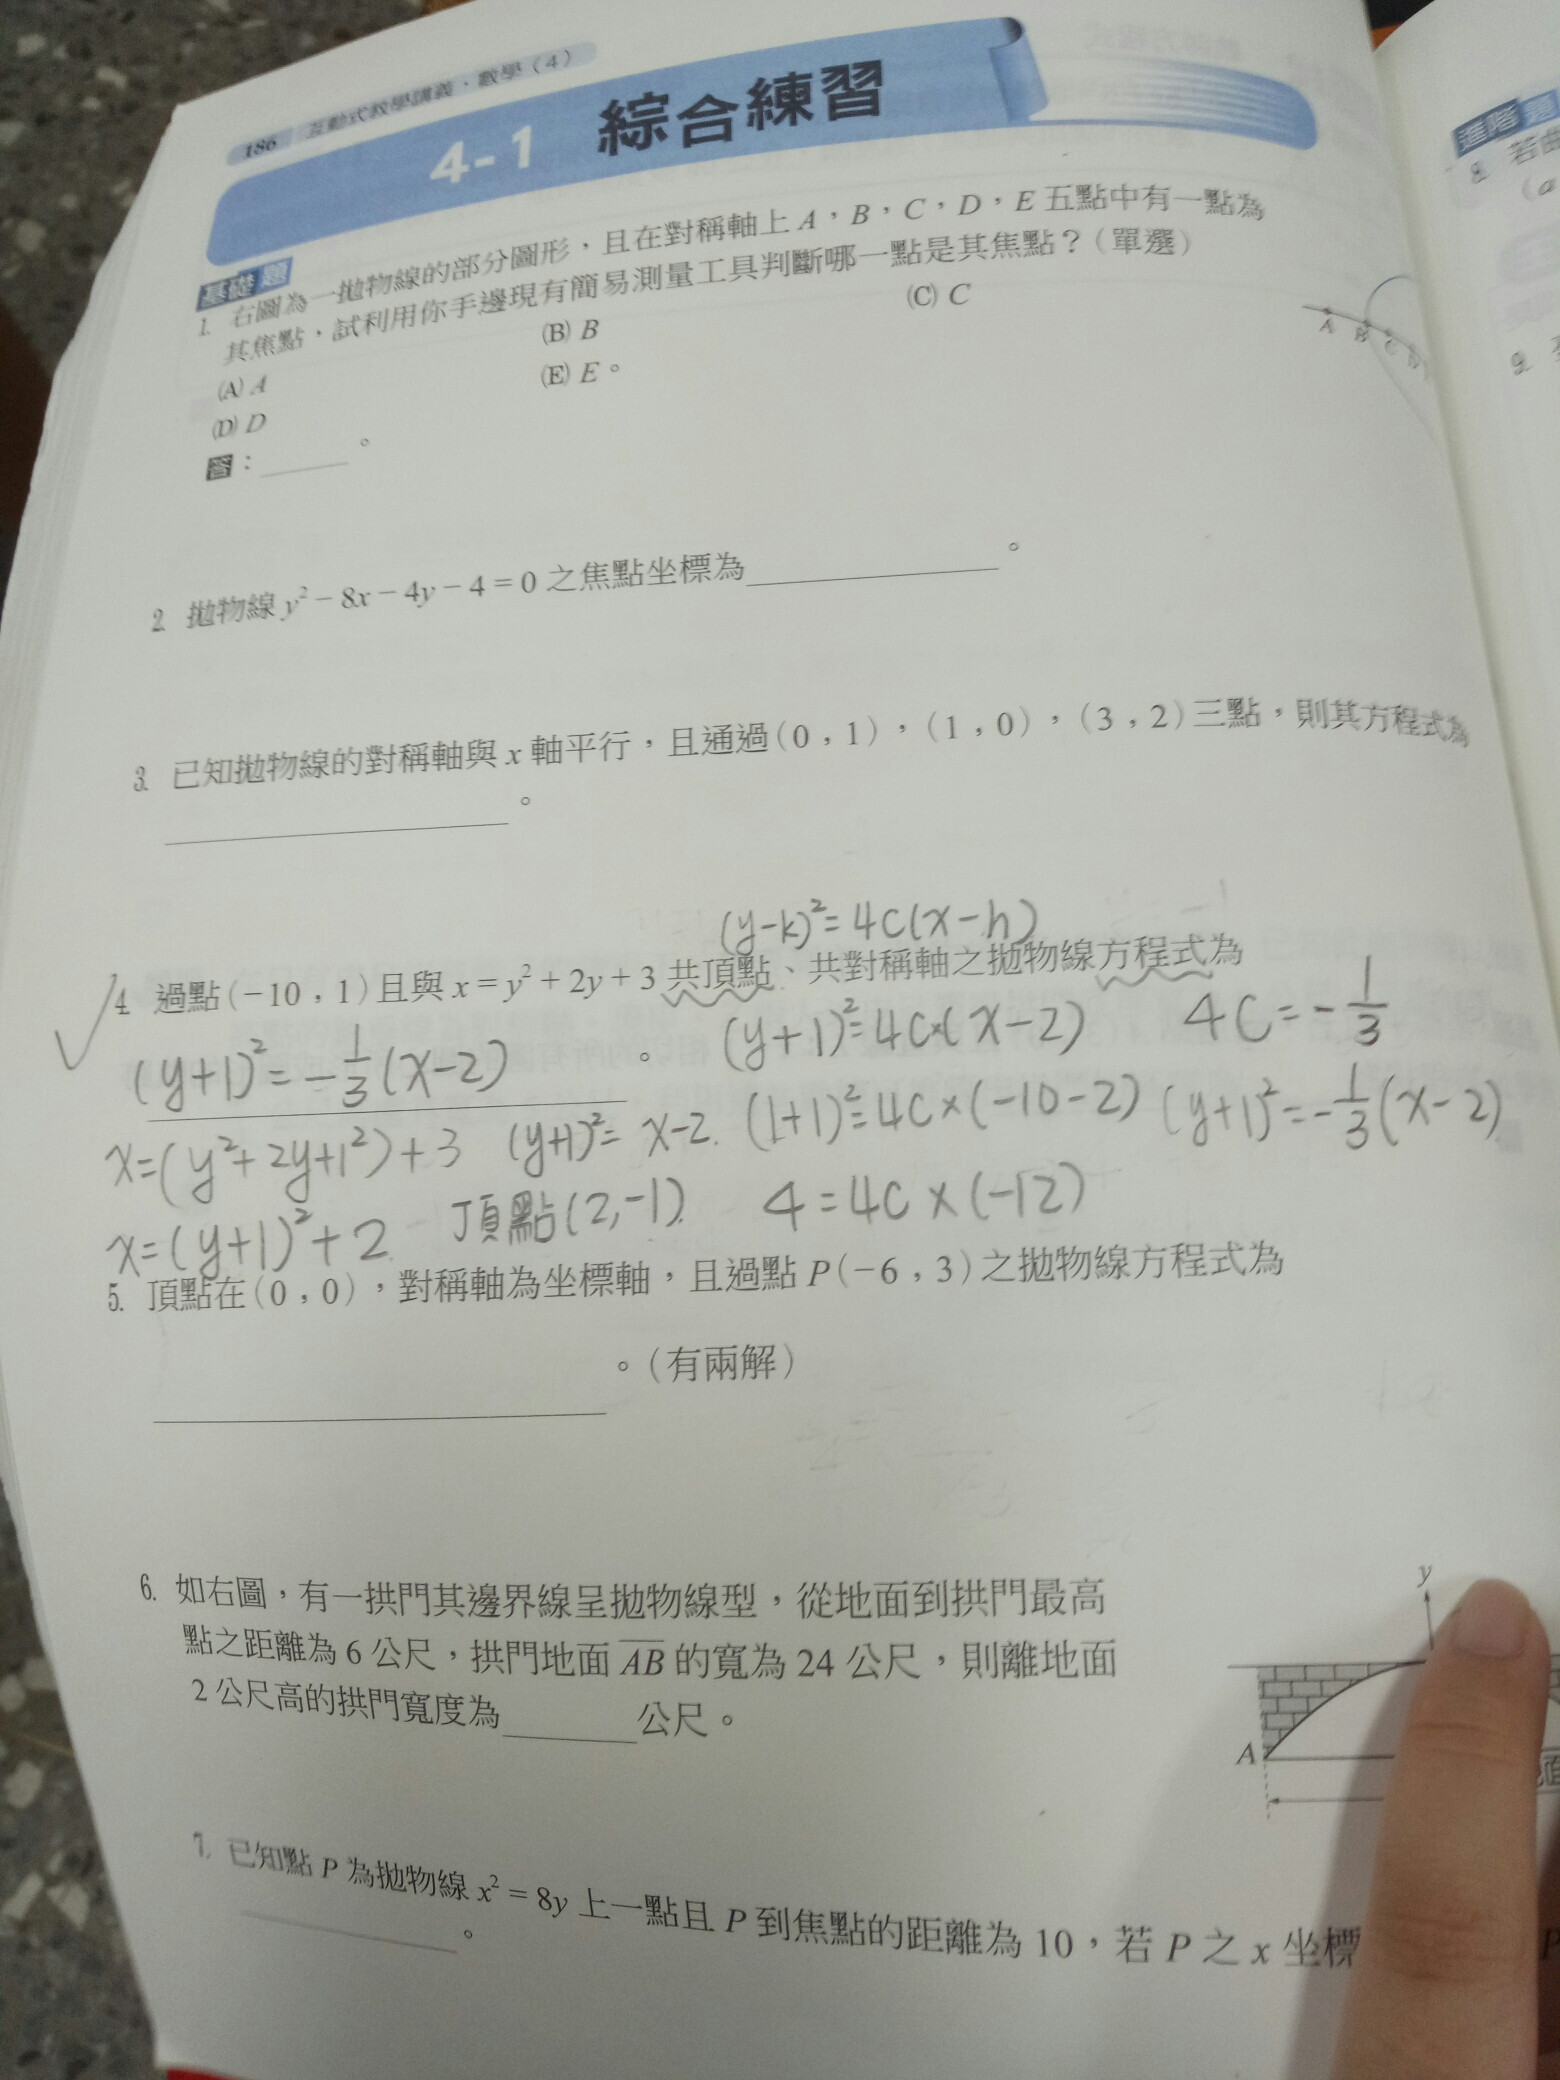 186 互動式教學講義、數學（4）
4-1 綜合練習
基礎題
1. 右圖為一拋物線的部分圖形，且在對稱軸上 A，B，C，D，E 五點中有一點為
其焦點，試利用你手邊現有簡易測量工具判斷哪一點是其焦點？（單選）
(A) A (B) B (C) C
(D) D (E) E。
答：______。
A B C D
2. 拋物線 y² − 8x − 4y − 4 = 0 之焦點坐標為______。
3. 已知拋物線的對稱軸與 x 軸平行，且通過(0，1)，(1，0)，(3，2)三點，則其方程式為
______。
(y-k)²=4C(x-h)
4. 過點(−10，1)且與 x = y² + 2y + 3 共頂點、共對稱軸之拋物線方程式為
(y+1)²=-1/3(x-2) 。 (y+1)²=4C×(x-2) 4C=-1/3
x=(y²+2y+1²)+3 (y+1)²=x-2. (1+1)²=4C×(-10-2) (y+1)²=-1/3(x-2)
x=(y+1)²+2 頂點(2,-1). 4=4C×(-12)
5. 頂點在(0，0)，對稱軸為坐標軸，且過點 P(−6，3)之拋物線方程式為
______。（有兩解）
6. 如右圖，有一拱門其邊界線呈拋物線型，從地面到拱門最高
點之距離為 6 公尺，拱門地面 AB 的寬為 24 公尺，則離地面
2 公尺高的拱門寬度為______公尺。
y
A
7. 已知點 P 為拋物線 x² = 8y 上一點且 P 到焦點的距離為 10，若 P 之 x 坐標
______。
進階題
8. 若
(a
9.